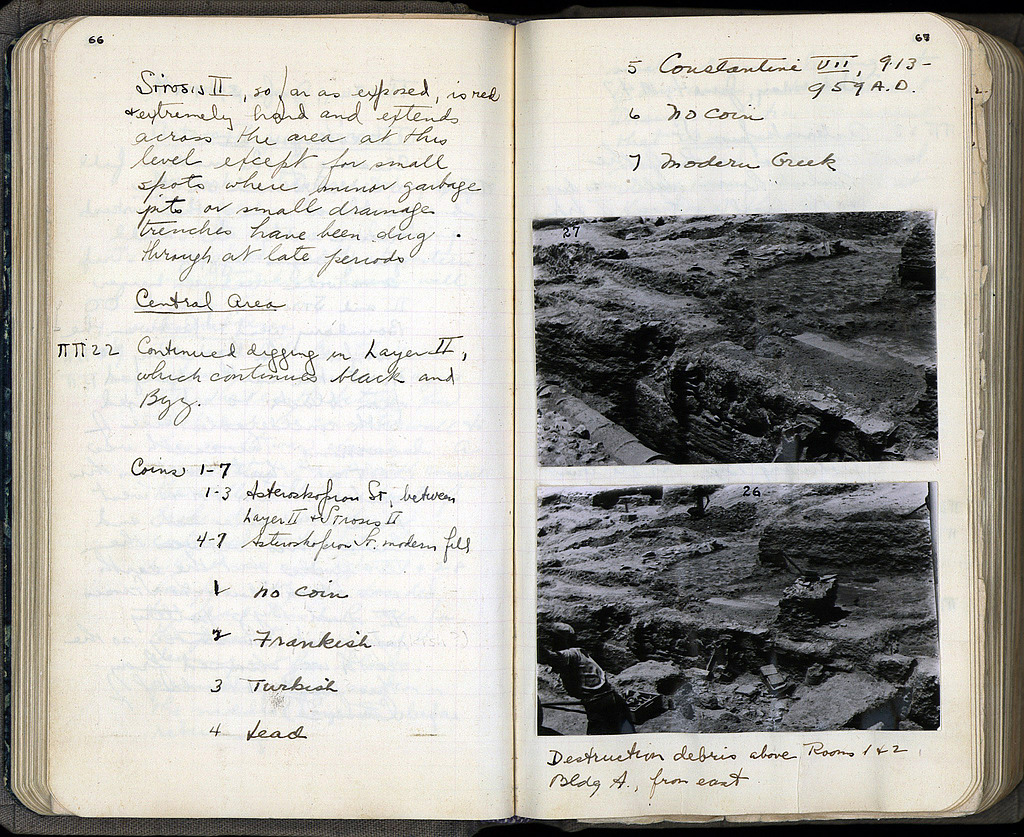 66
Strosis II, so far as exposed, is red
& extremely hard and extends
across the area at this
level except for small
spots where minor garbage
pits or small drainage
trenches have been dug
through at late periods
Central Area
ΠΠ22 Continued digging in Layer II,
which continues black and
Byz.
Coins 1-7
1-3 Asteroskopion St, between
Layer II & Strosis II
4-7 Asteroskopion St. modern fill
1 no coin
2 Frankish
3 Turkish
4 Lead
67
5 Constantine VII, 913-
959 A.D.
6 no coin
7 Modern Greek
27
26
Destruction debris above Rooms 1 & 2,
Bldg A., from east